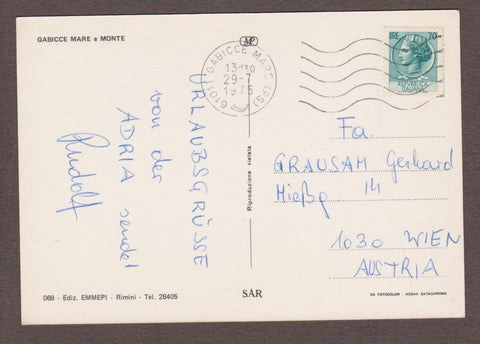 GABICCE MARE e MONTE
MP
61011 GABICCE MARE (PS)
13-30
29-7
1975
LIRE 70
ITALIANA
URLAUBSGRÜSSE
von der
ADRIA sendet
Rudolf
Fa.
GRAUSAM Gerhard
Hießg. 14
1030 WIEN
AUSTRIA
Riproduzione vietata
069 - Ediz. EMMEPI - Rimini - Tel. 28405
SAR
DA FOTOCOLOR - KODAK EKTACHROME